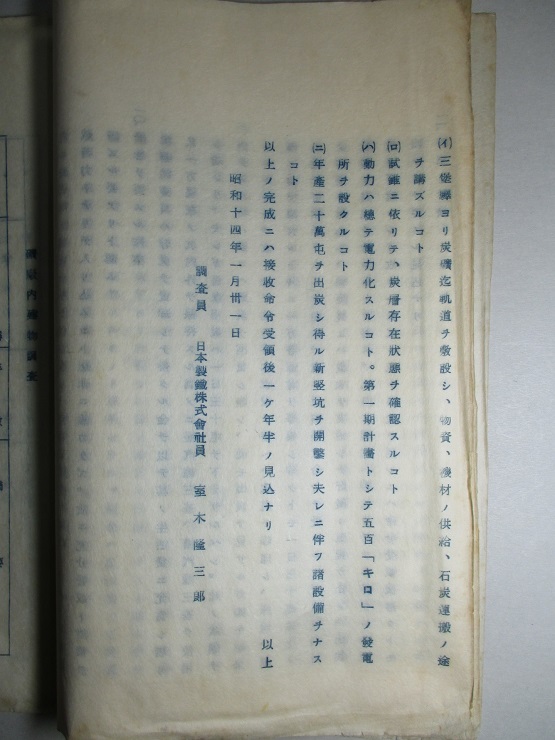 (イ)三堡驛ヨリ炭礦迄軌道ヲ敷設シ、物資、機材ノ供給、石炭運搬ノ途
ヲ講ズルコト
(ロ)試錐ニ依リテ、炭層存在狀態ヲ確認スルコト
(ハ)動力ハ總テ電力化スルコト。第一期計畫トシテ五百「キロ」ノ發電
所ヲ設クルコト
(ニ)年產二十萬屯ヲ出炭シ得ル新竪坑ヲ開鑿シ夫レニ伴フ諸設備ヲナス
コト
以上ノ完成ニハ接收命令受領後一ケ年半ノ見込ナリ
以上
昭和十四年一月卅一日
調査員 日本製鐵株式會社員 室木隆三郎